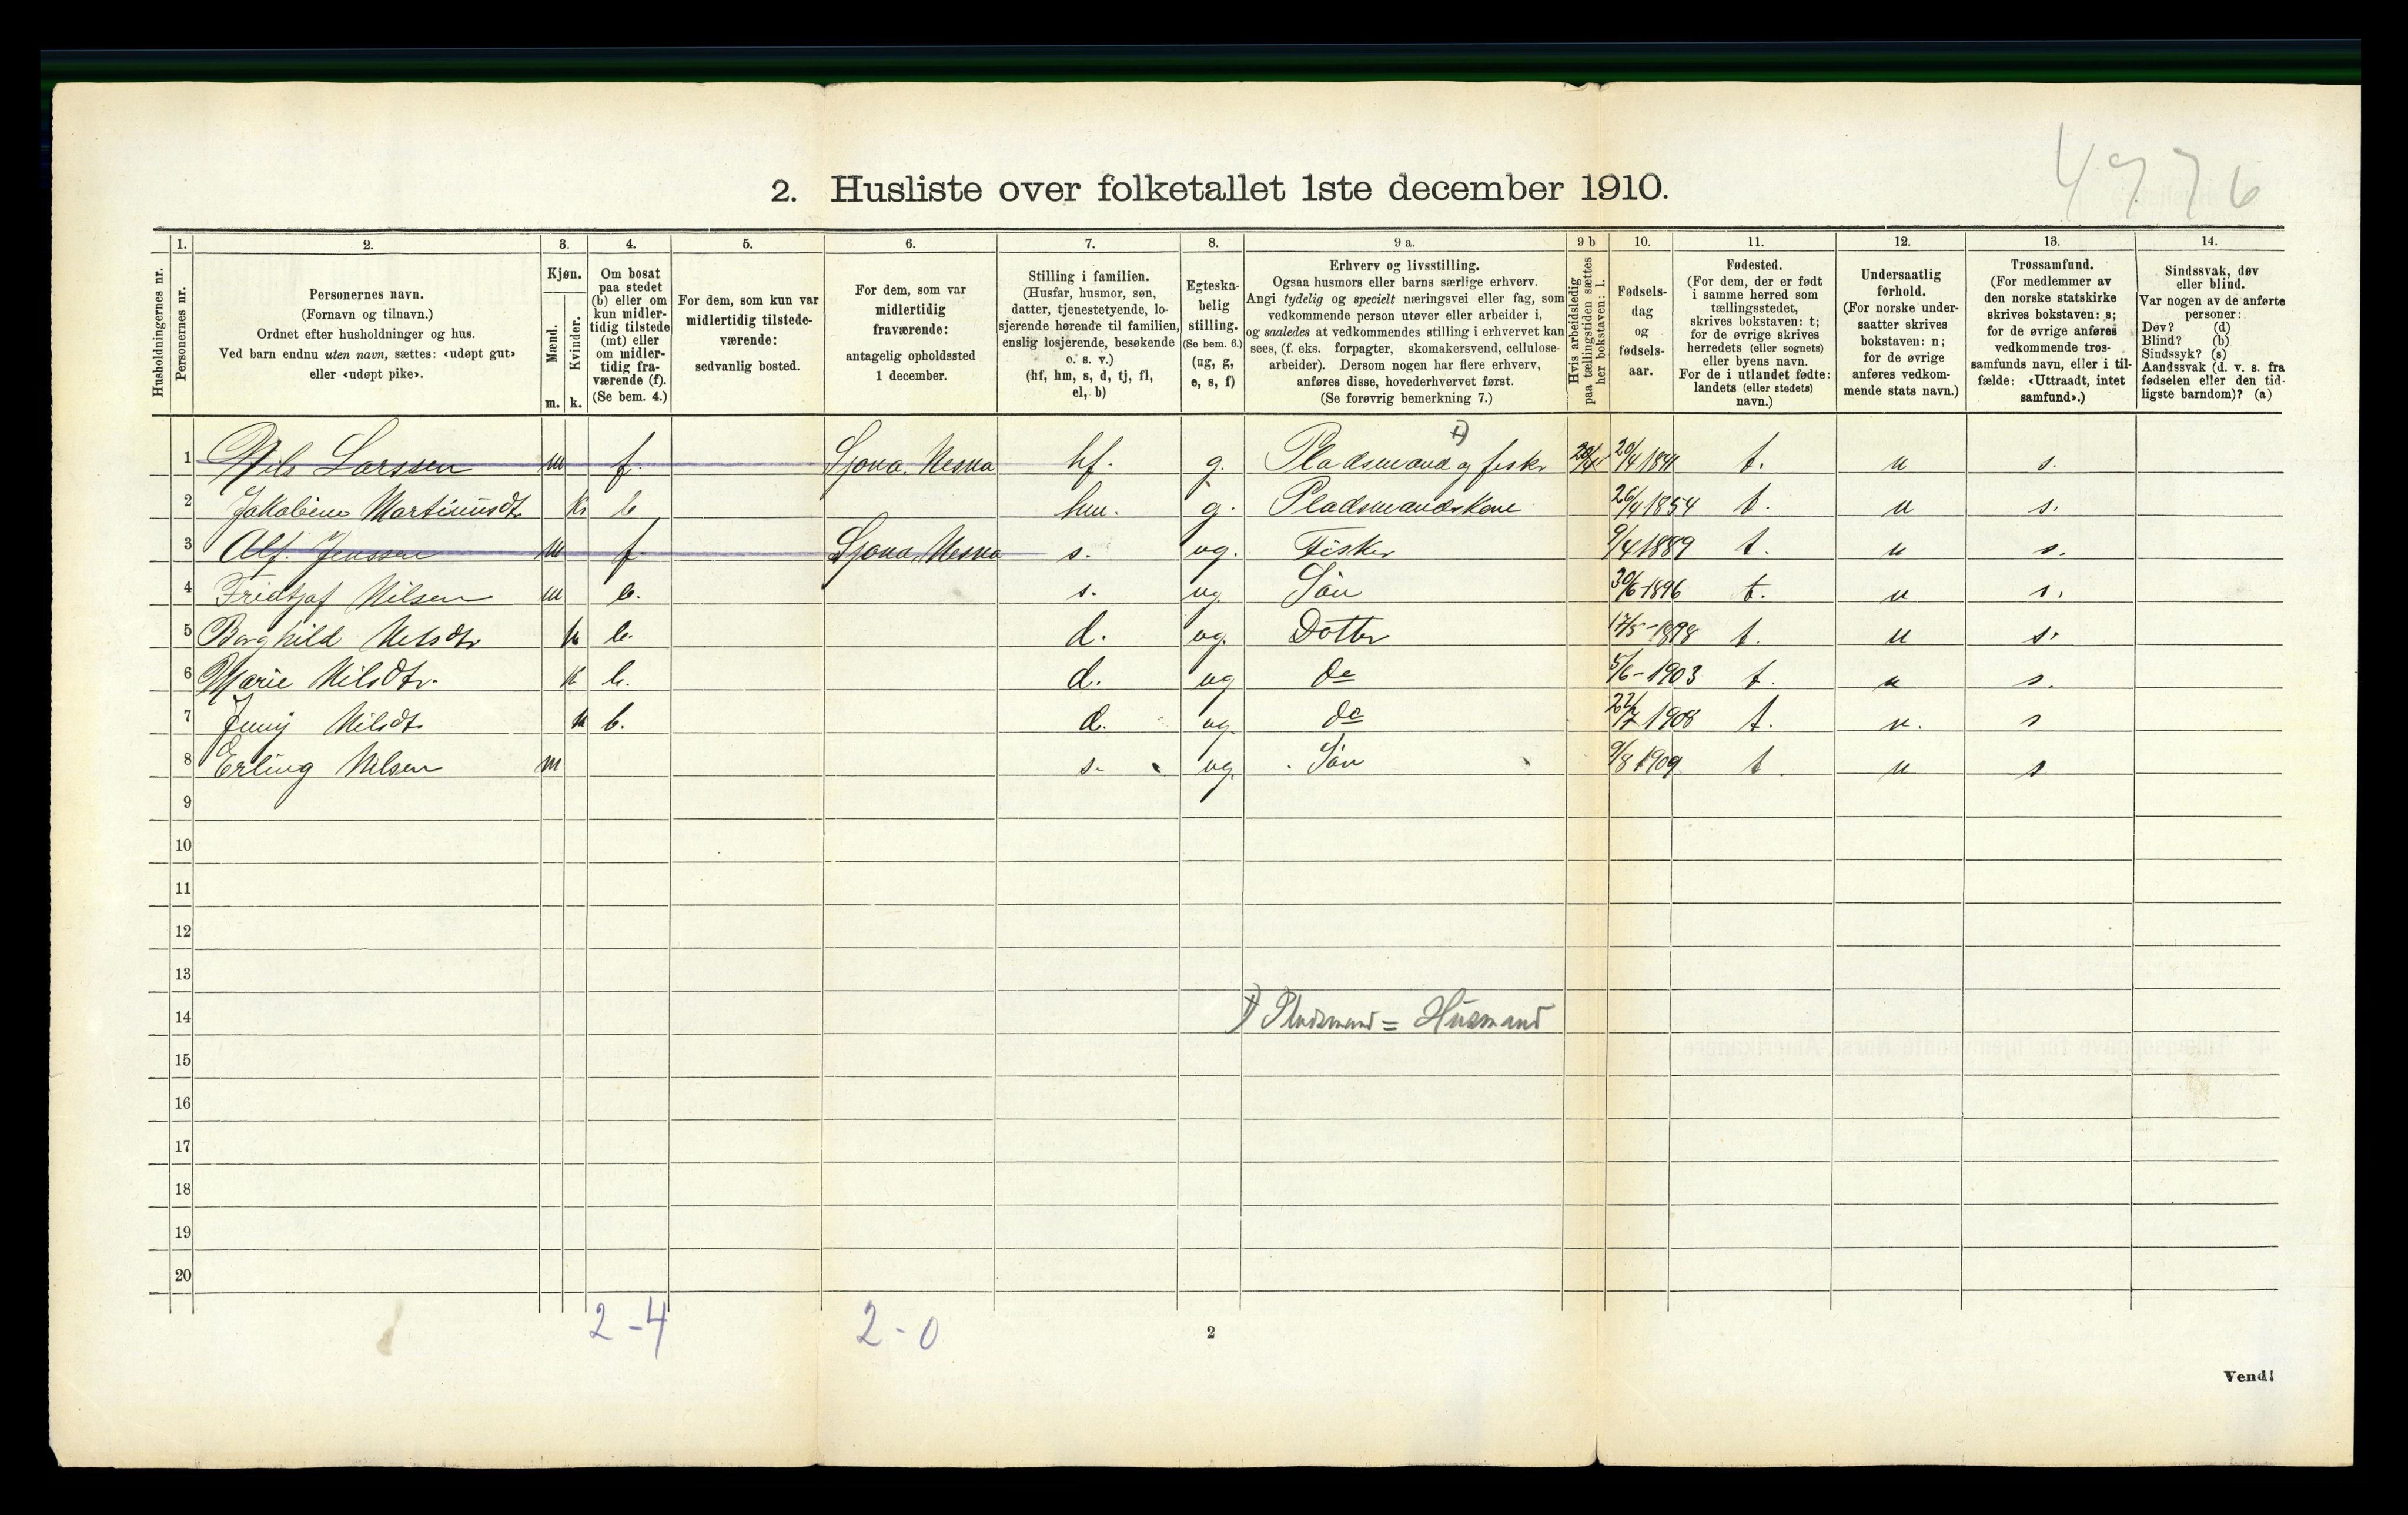 4776
2. Husliste over folketallet 1ste december 1910.
Husholdningernes nr.
1. Personernes nr.
2. Personernes navn.
(Fornavn og tilnavn.)
Ordnet efter husholdninger og hus.
Ved barn endnu uten navn, sættes: «udøpt gut»
eller «udøpt pike».
3. Kjøn.
Mænd. m.
Kvinder. k.
4. Om bosat
paa stedet
(b) eller om
kun midler-
tidig tilstede
(mt) eller
om midler-
tidig fra-
værende (f).
(Se bem. 4.)
5. For dem, som kun var
midlertidig tilstede-
værende:
sedvanlig bosted.
6. For dem, som var
midlertidig
fraværende:
antagelig opholdssted
1 december.
7. Stilling i familien.
(Husfar, husmor, søn,
datter, tjenestetyende, lo-
sjerende hørende til familien,
enslig losjerende, besøkende
o. s. v.)
(hf, hm, s, d, tj, fl,
el, b)
8. Egteska-
belig
stilling.
(Se bem. 6.)
(ug, g,
e, s, f)
9 a. Erhverv og livsstilling.
Ogsaa husmors eller barns særlige erhverv.
Angi tydelig og specielt næringsvei eller fag, som
vedkommende person utøver eller arbeider i,
og saaledes at vedkommendes stilling i erhvervet kan
sees, (f. eks. forpagter, skomakersvend, cellulose-
arbeider). Dersom nogen har flere erhverv,
anføres disse, hovederhvervet først.
(Se forøvrig bemerkning 7.)
9 b Hvis arbeidsledig
paa tællingstiden sættes
her bokstaven: l.
10. Fødsels-
dag
og
fødsels-
aar.
11. Fødested.
(For dem, der er født
i samme herred som
tællingsstedet,
skrives bokstaven: t;
for de øvrige skrives
herredets (eller sognets)
eller byens navn.
For de i utlandet fødte:
landets (eller stedets)
navn.)
12. Undersaatlig
forhold.
(For norske under-
saatter skrives
bokstaven: n;
for de øvrige
anføres vedkom-
mende stats navn.)
13. Trossamfund.
(For medlemmer av
den norske statskirke
skrives bokstaven: s;
for de øvrige anføres
vedkommende tros-
samfunds navn, eller i til-
fælde: «Uttraadt, intet
samfund».)
14. Sindssvak, døv
eller blind.
Var nogen av de anførte
personer:
Døv? (d)
Blind? (b)
Sindssyk? (s)
Aandssvak (d. v. s. fra
fødselen eller den tid-
ligste barndom)? (a)
1 Nils Larssen m f. Sjona, Nesna hf. g. Pladsmand 1) og fisker 20/4 20/4 1841 t. n s.
2 Jakobine Martinusdt. k b hm. g. Pladsmandskone 26/4 1854 t. n s.
3 Alf. Jenssen m f Sjona, Nesna s. ug. Fisker 9/4 1889 t. n s.
4 Fridtjof Nilsen m b. s. ug Søn 30/6-1896 t. n s.
5 Borghild Nilsdtr k b. d. ug. Datter 17/5-1898 t. n s.
6 Marie Nilsdtr. k b. d. ug do 5/6-1903 t. n s.
7 Jenny Nilsdt. k b. d. ug. do 22/7 1908 t. n. s
8 Erling Nilsen m s. ug. Søn 9/8 1909 t. n s
9
10
11
12
13
14 1) Pladsmand = Husmand
15
16
17
18
19
20
2-4 2-0
2
Vend!